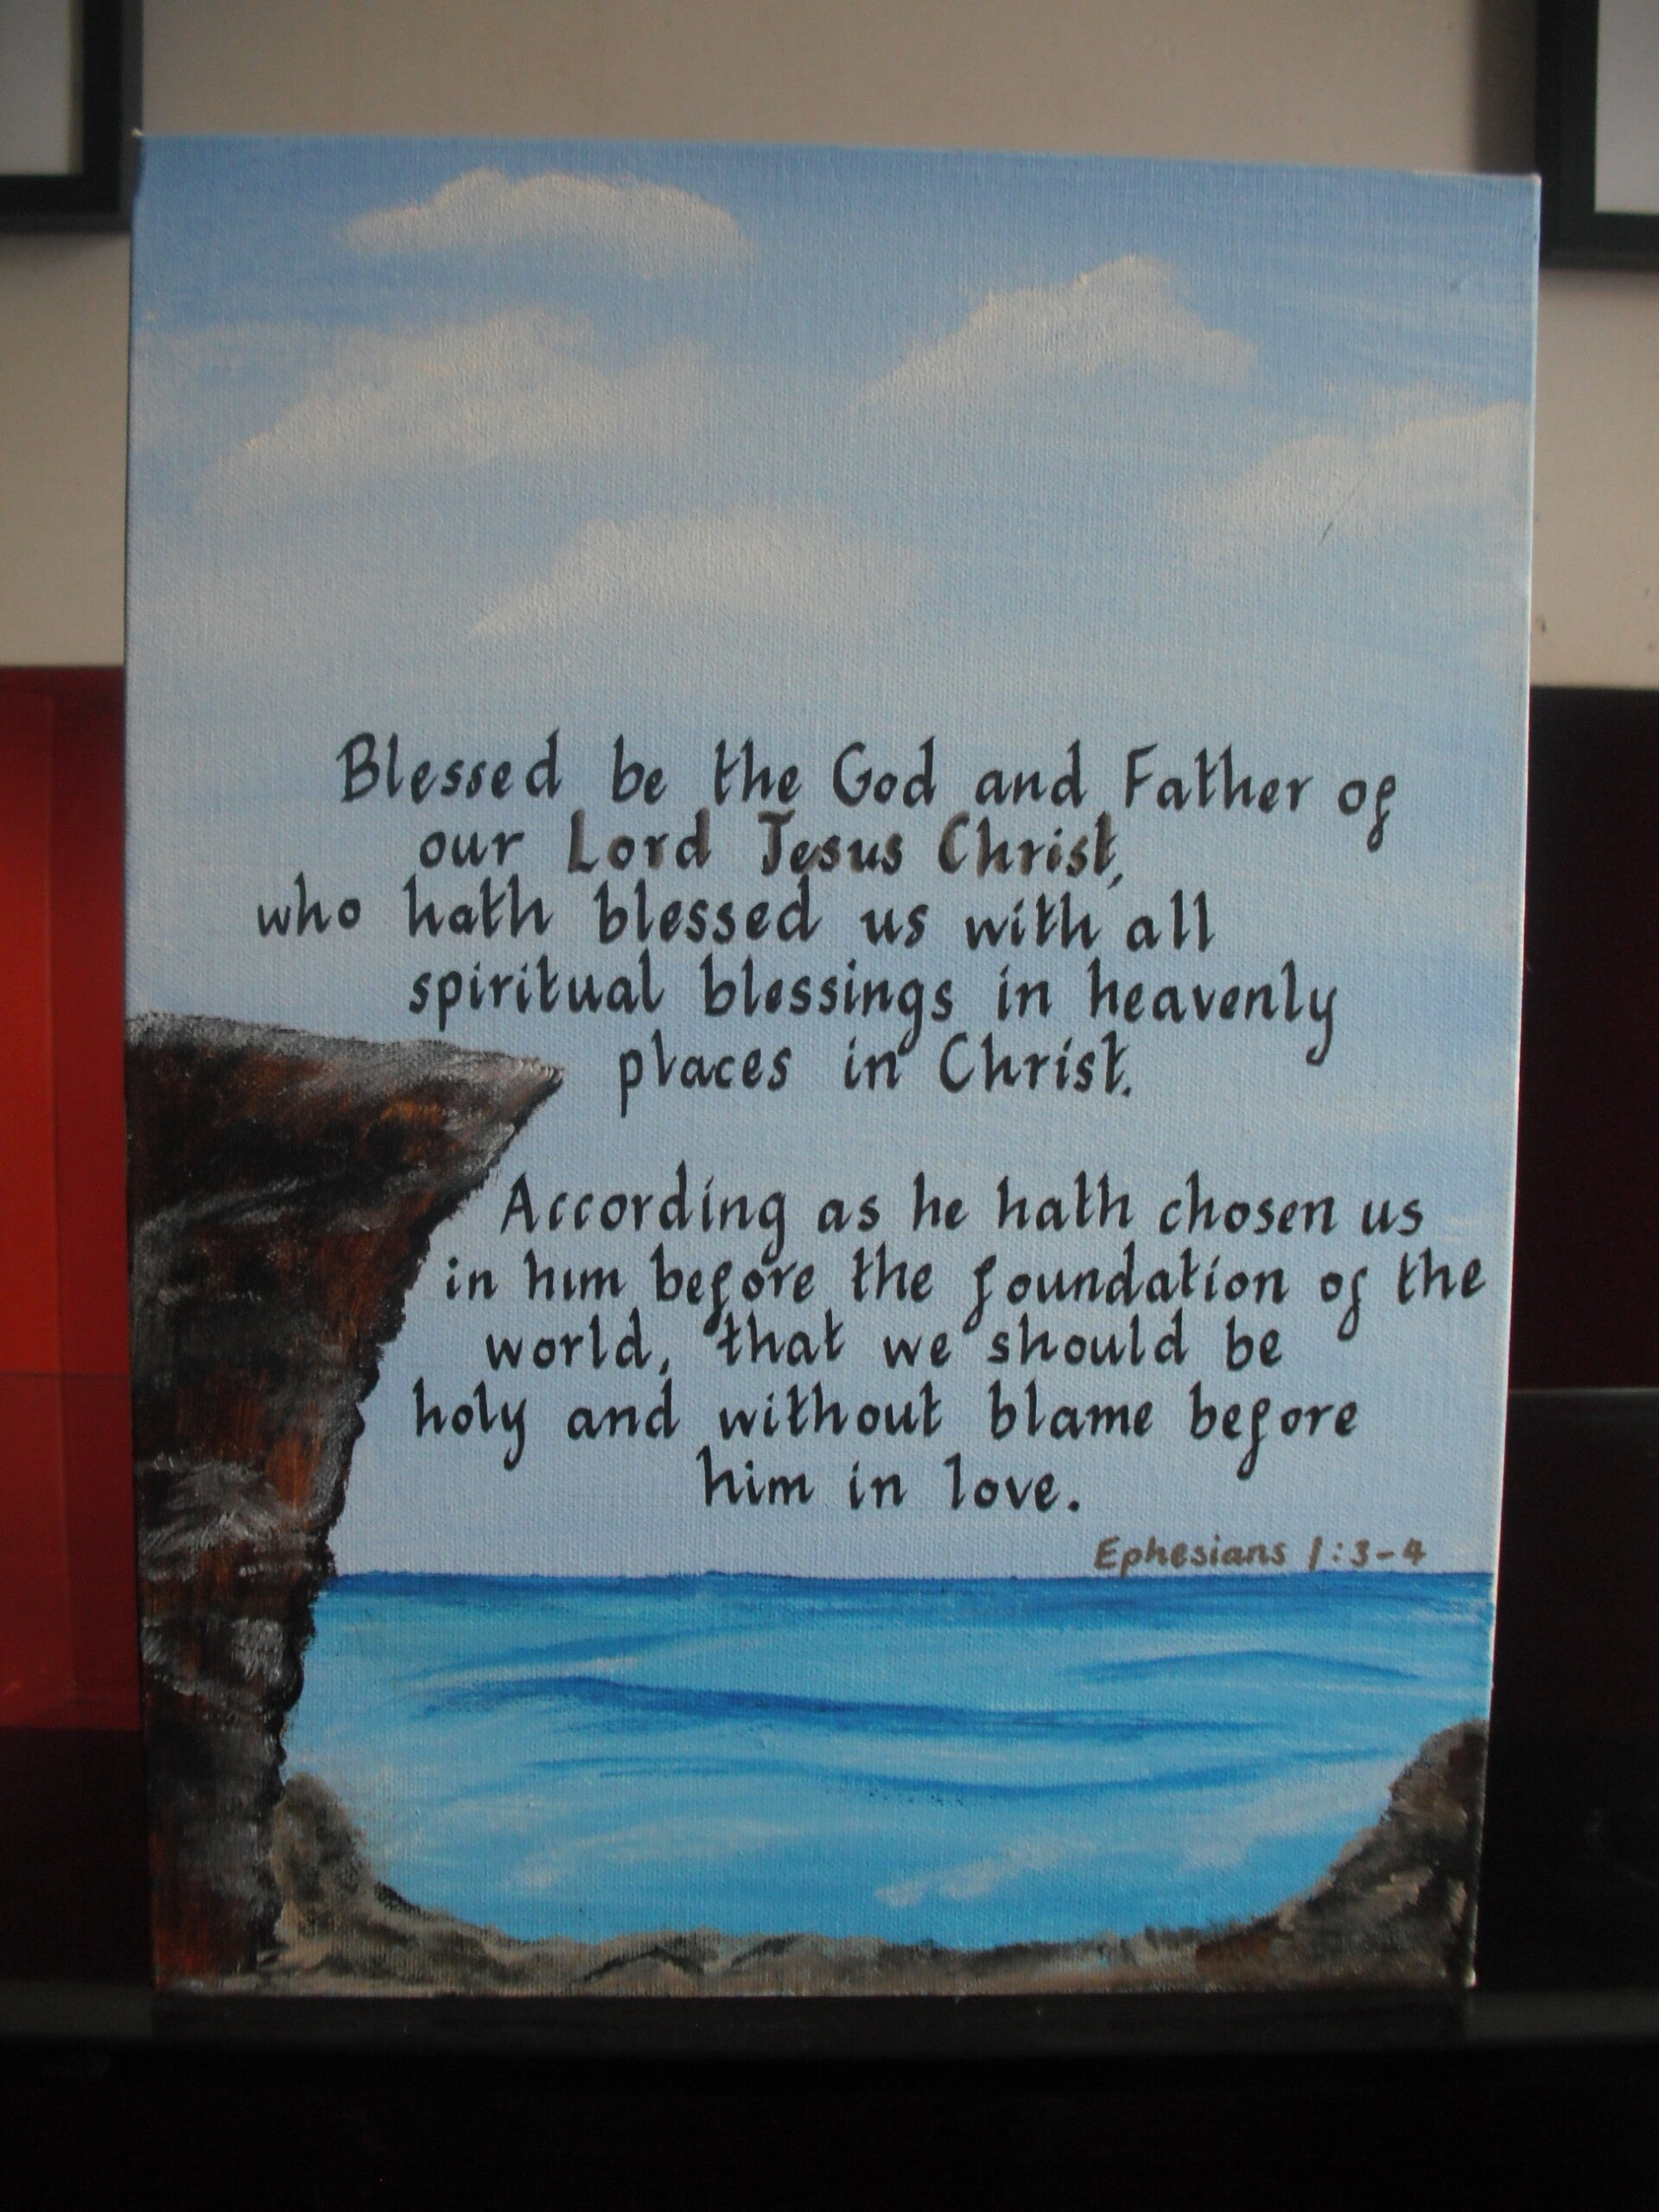 Blessed be the God and Father of
our Lord Jesus Christ,
who hath blessed us with all
spiritual blessings in heavenly
places in Christ.
According as he hath chosen us
in him before the foundation of the
world, that we should be
holy and without blame before
him in love.
Ephesians 1:3-4